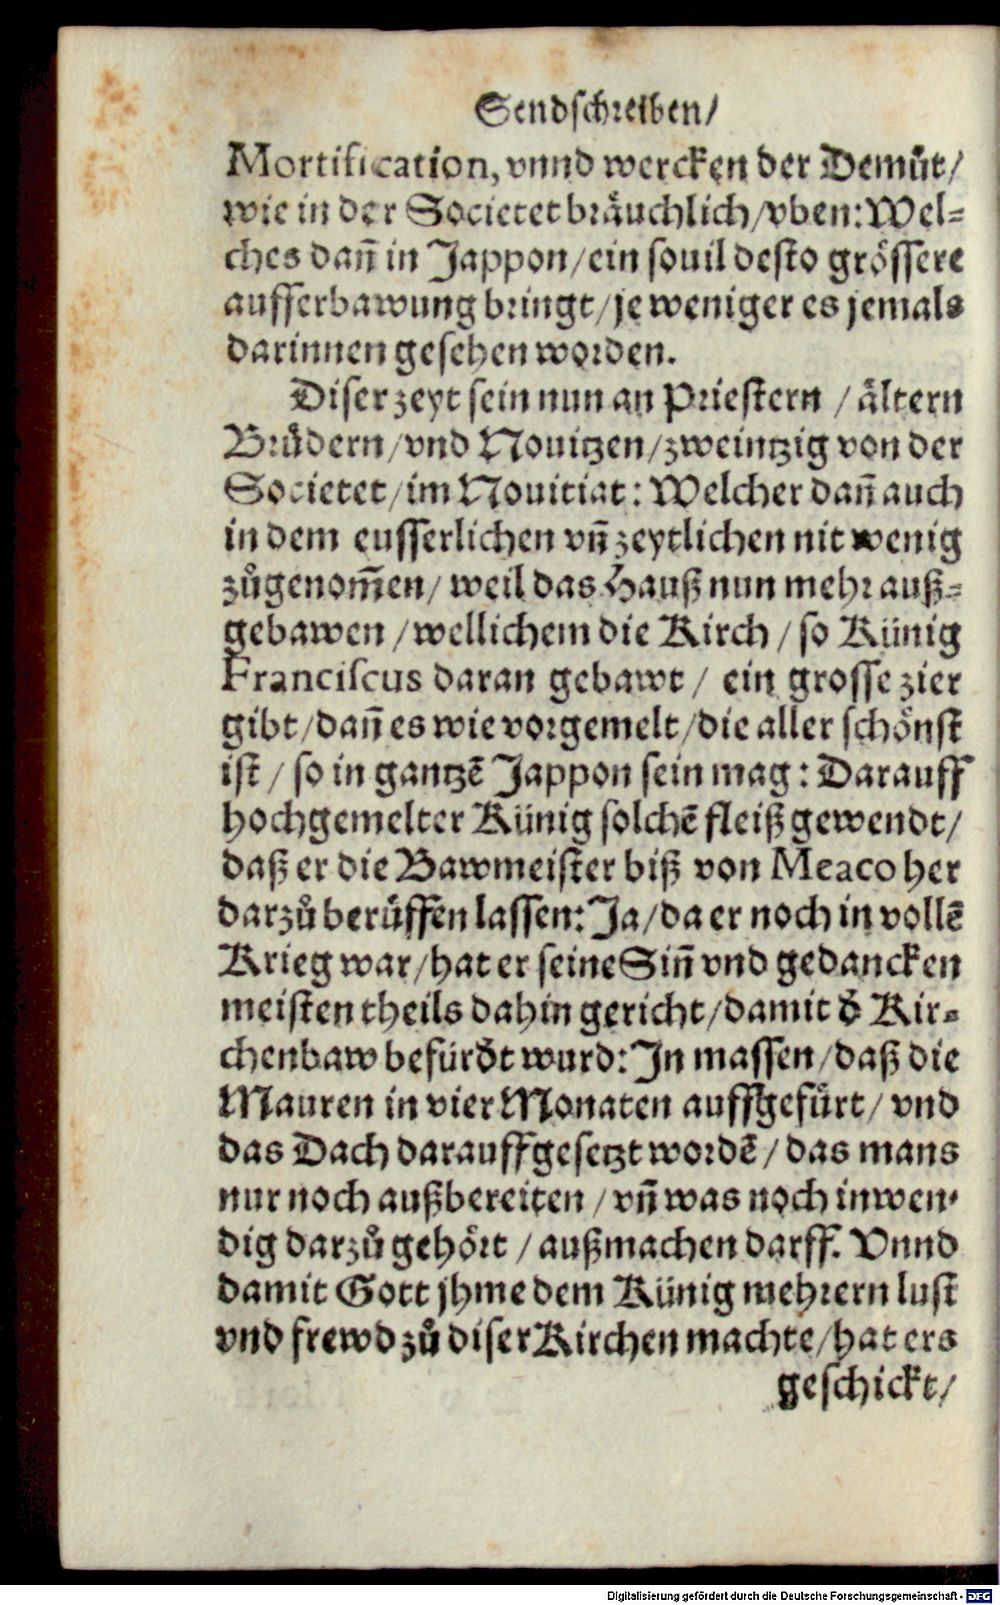 Sendschreiben/
Mortification, vnnd wercken der Demůt/
wie in der Societet bräuchlich/vben: Wel=
ches dañ in Jappon/ein souil desto grössere
aufferbawung bringt/je weniger es jemals
darinnen gesehen worden.
Diser zeyt sein nun an Priestern / ältern
Brůdern/vnd Nouitzen/zweintzig von der
Societet/im Nouitiat: Welcher dañ auch
in dem eusserlichen vñ zeytlichen nit wenig
zůgenom̃en/ weil das Hauß nun mehr auß=
gebawen /wellichem die Kirch / so Künig
Franciscus daran gebawt / ein grosse zier
gibt/dañ es wie vorgemelt/die aller schönst
ist / so in gantzẽ Jappon sein mag: Darauff
hochgemelter Künig solchẽ fleiß gewendt/
daß er die Bawmeister biß von Meaco her
darzů berůffen lassen: Ja/da er noch in vollẽ
Krieg war/hat er seine Siñ vnd gedancken
meisten theils dahin gericht/damit d̕ Kir=
chenbaw befürd̕t wurd: In massen/daß die
Mauren in vier Monaten auffgefürt/ vnd
das Dach darauff gesetzt wordẽ/ das mans
nur noch außbereiten /vñ was noch inwen=
dig darzů gehört / außmachen darff. Vnnd
damit Gott jhme dem Künig mehrern lust
vnd frewd zů diser Kirchen machte/hat ers
geschickt/
Digitalisierung gefördert durch die Deutsche Forschungsgemeinschaft - DFG